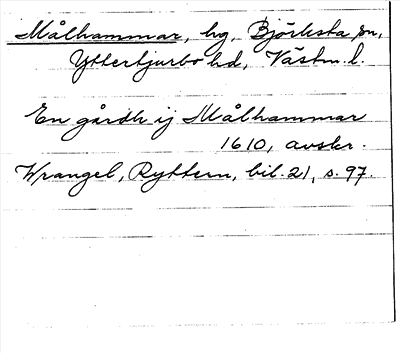 Målhammar, hg, Björksta sn,
Yttertjurbo hd, Västm. l.
En gårdh ij Målhammar
1610, avskr.
Wrangel, Ryttern, bil. 21, s. 97.